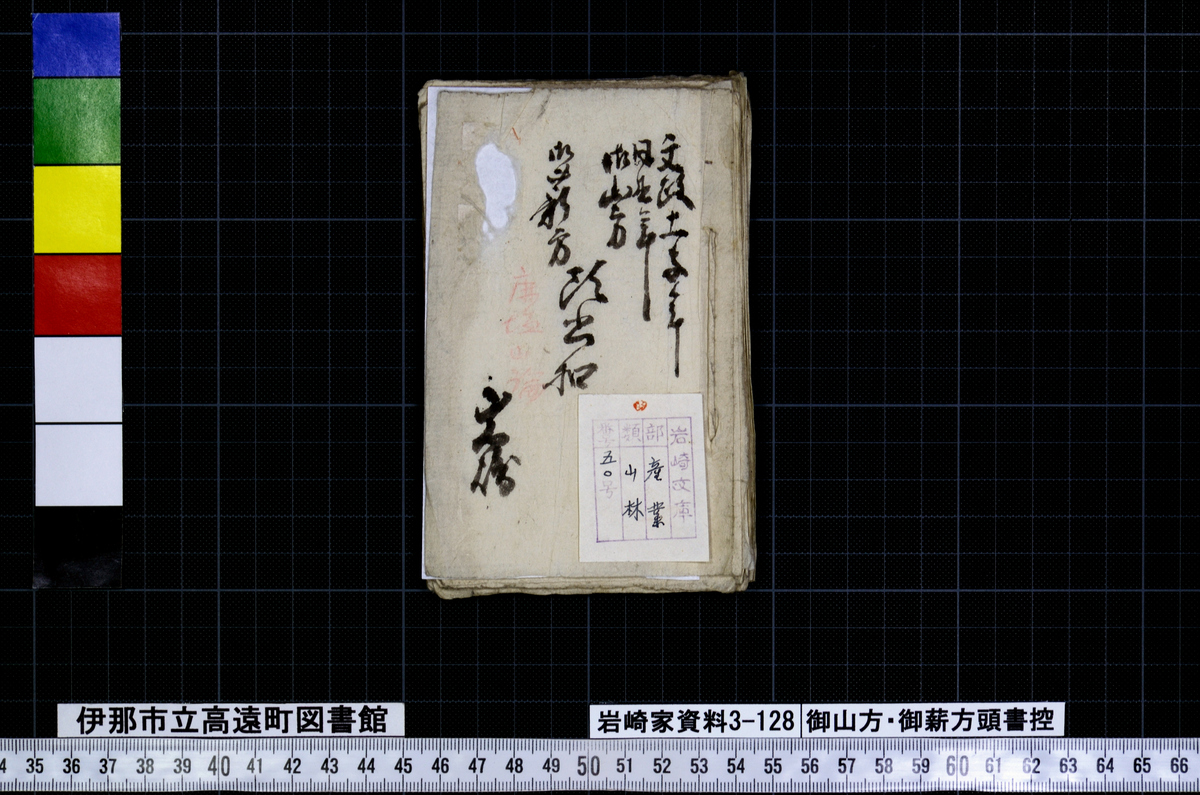 文政十一子年
同丑年
御山方
御薪方
頭書扣
岩崎
岩崎文庫
部 産業
類 山林
五〇号
伊那市立高遠町図書館
岩崎家資料3-128
御山方・御薪方頭書控
34 35 36 37 38 39 40 41 42 43 44 45 46 47 48 49 50 51 52 53 54 55 56 57 58 59 60 61 62 63 64 65 66